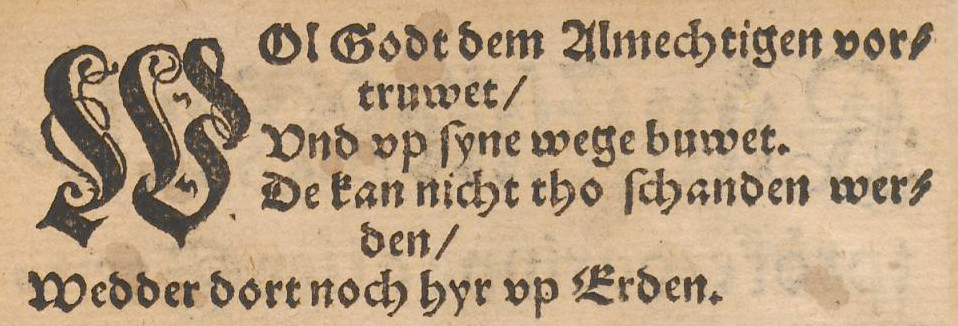 WOl Godt dem Almechtigen vor⸗
truwet/
Vnd vp ſyne wege buwet.
De kan nicht tho ſchanden wer⸗
den/
Wedder dort noch hyr vp Erden.